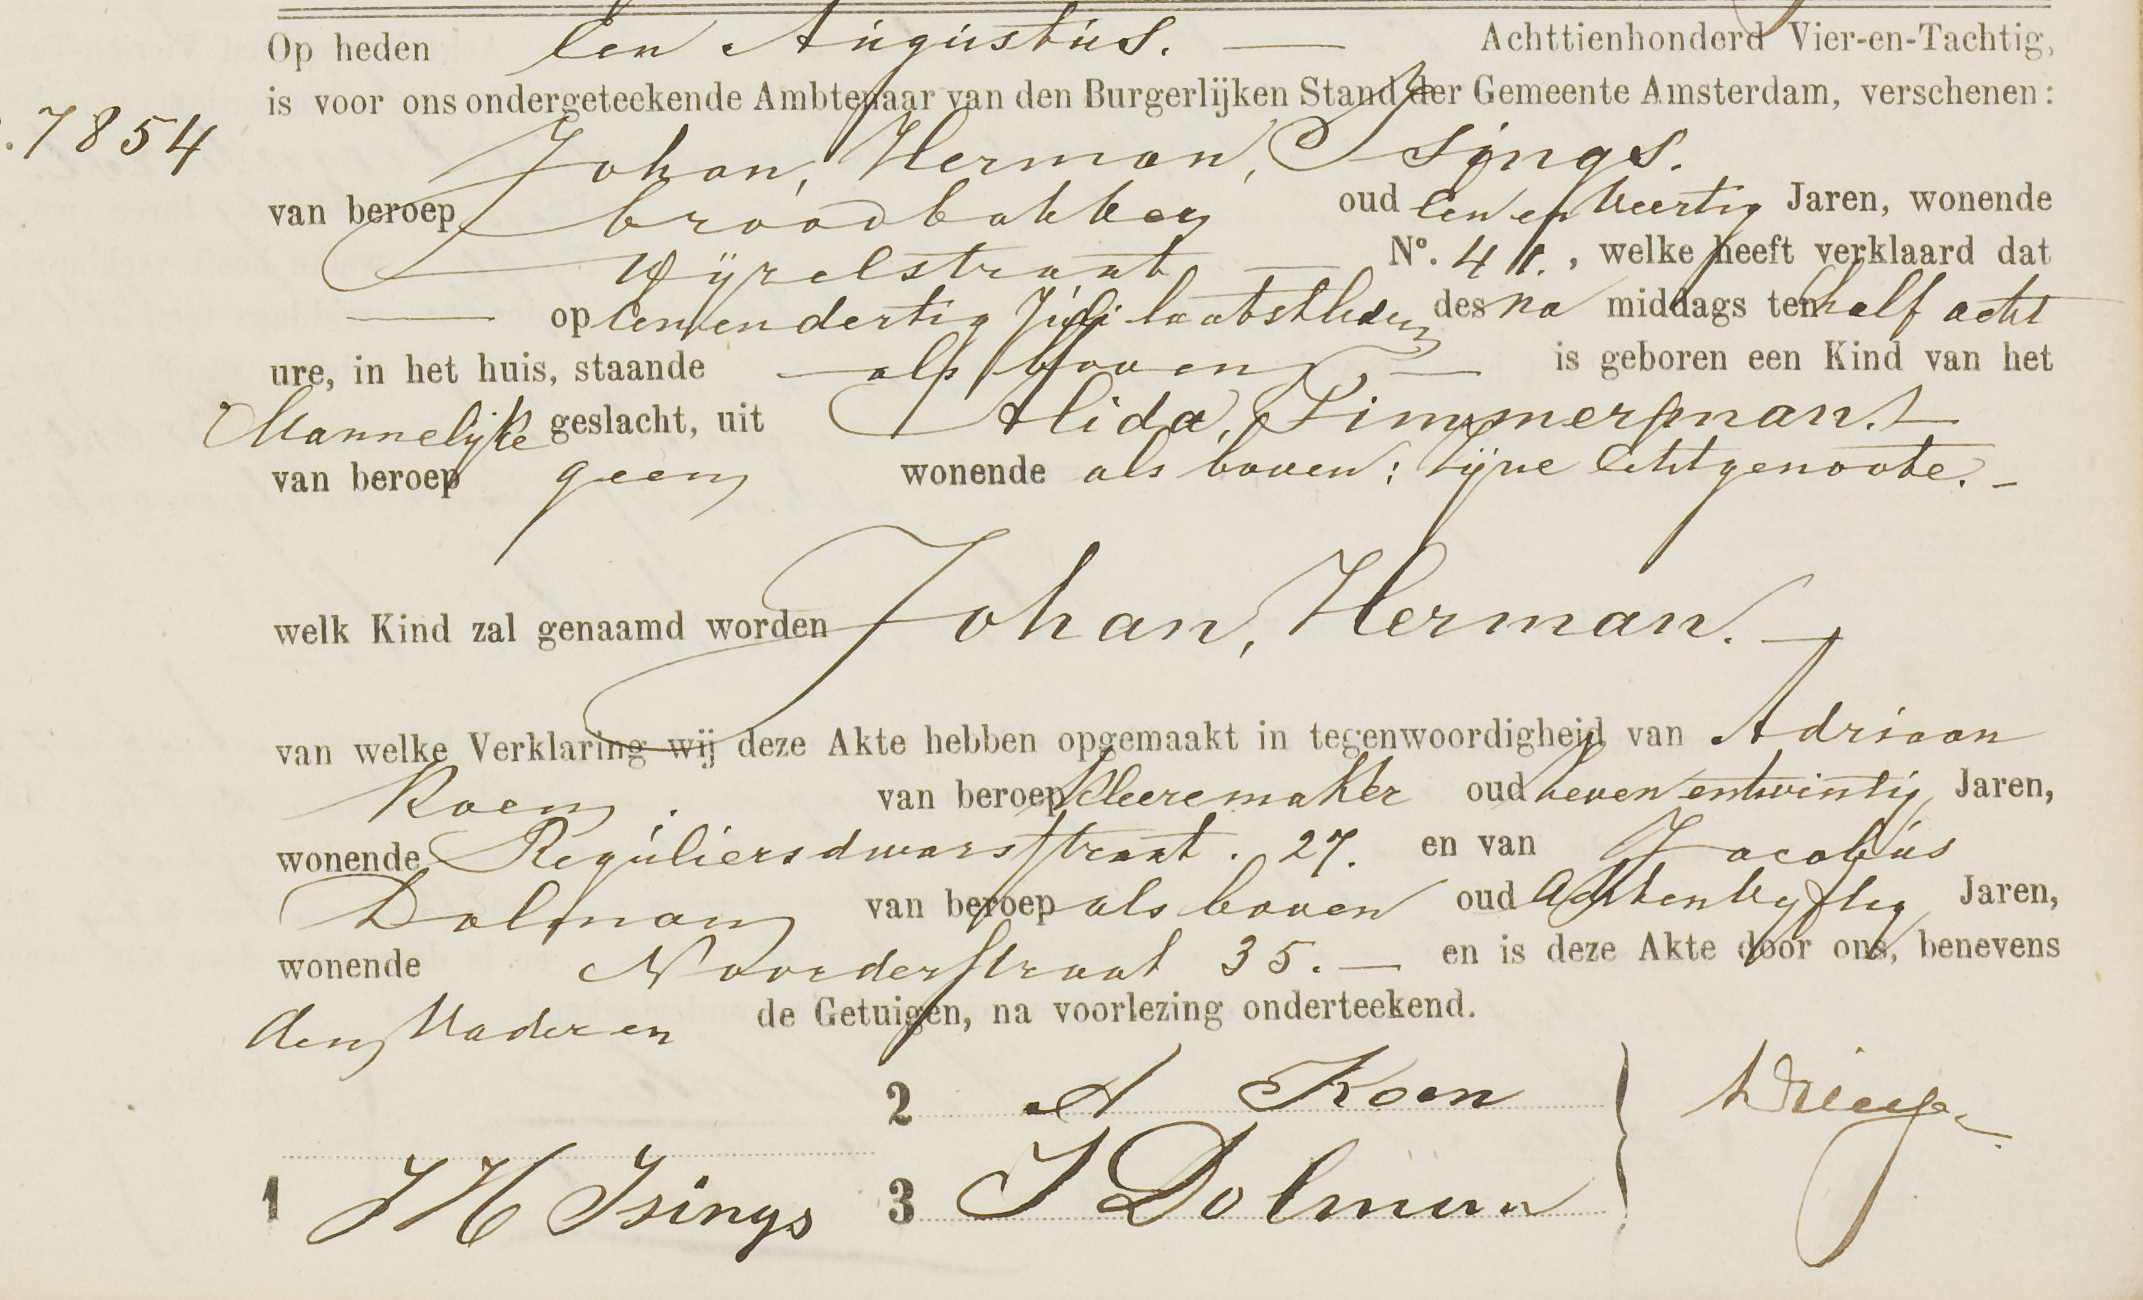 Op heden Een Augustus. — Achttienhonderd Vier-en-Tachtig,
is voor ons ondergeteekende Ambtenaar van den Burgerlijken Stand der Gemeente Amsterdam, verschenen:
7854
Johan, Herman, Isings.
van beroep broodbakker oud Een en Veertig Jaren, wonende
Wijzelstraat — No. 41., welke heeft verklaard dat
— op Eenendertig Juli laatstleden des na middags ten half acht
ure, in het huis, staande — als boven — is geboren een Kind van het
Mannelijke geslacht, uit Alida, Zimmerman. —
van beroep geen wonende als boven: zijne Echtgenoote. —
welk Kind zal genaamd worden Johan, Herman. —
van welke Verklaring wij deze Akte hebben opgemaakt in tegenwoordigheid van Adriaan
Koen. van beroep kleeremaker oud zevenentwintig Jaren,
wonende Reguliersdwarsstraat. 27. en van Jacobus
Dolman van beroep als boven oud Achtenvyftig Jaren,
wonende Noorderstraat 35. — en is deze Akte door ons, benevens
den Vader en de Getuigen, na voorlezing onderteekend.
2 A Koen
1 J H Isings 3 J Dolman